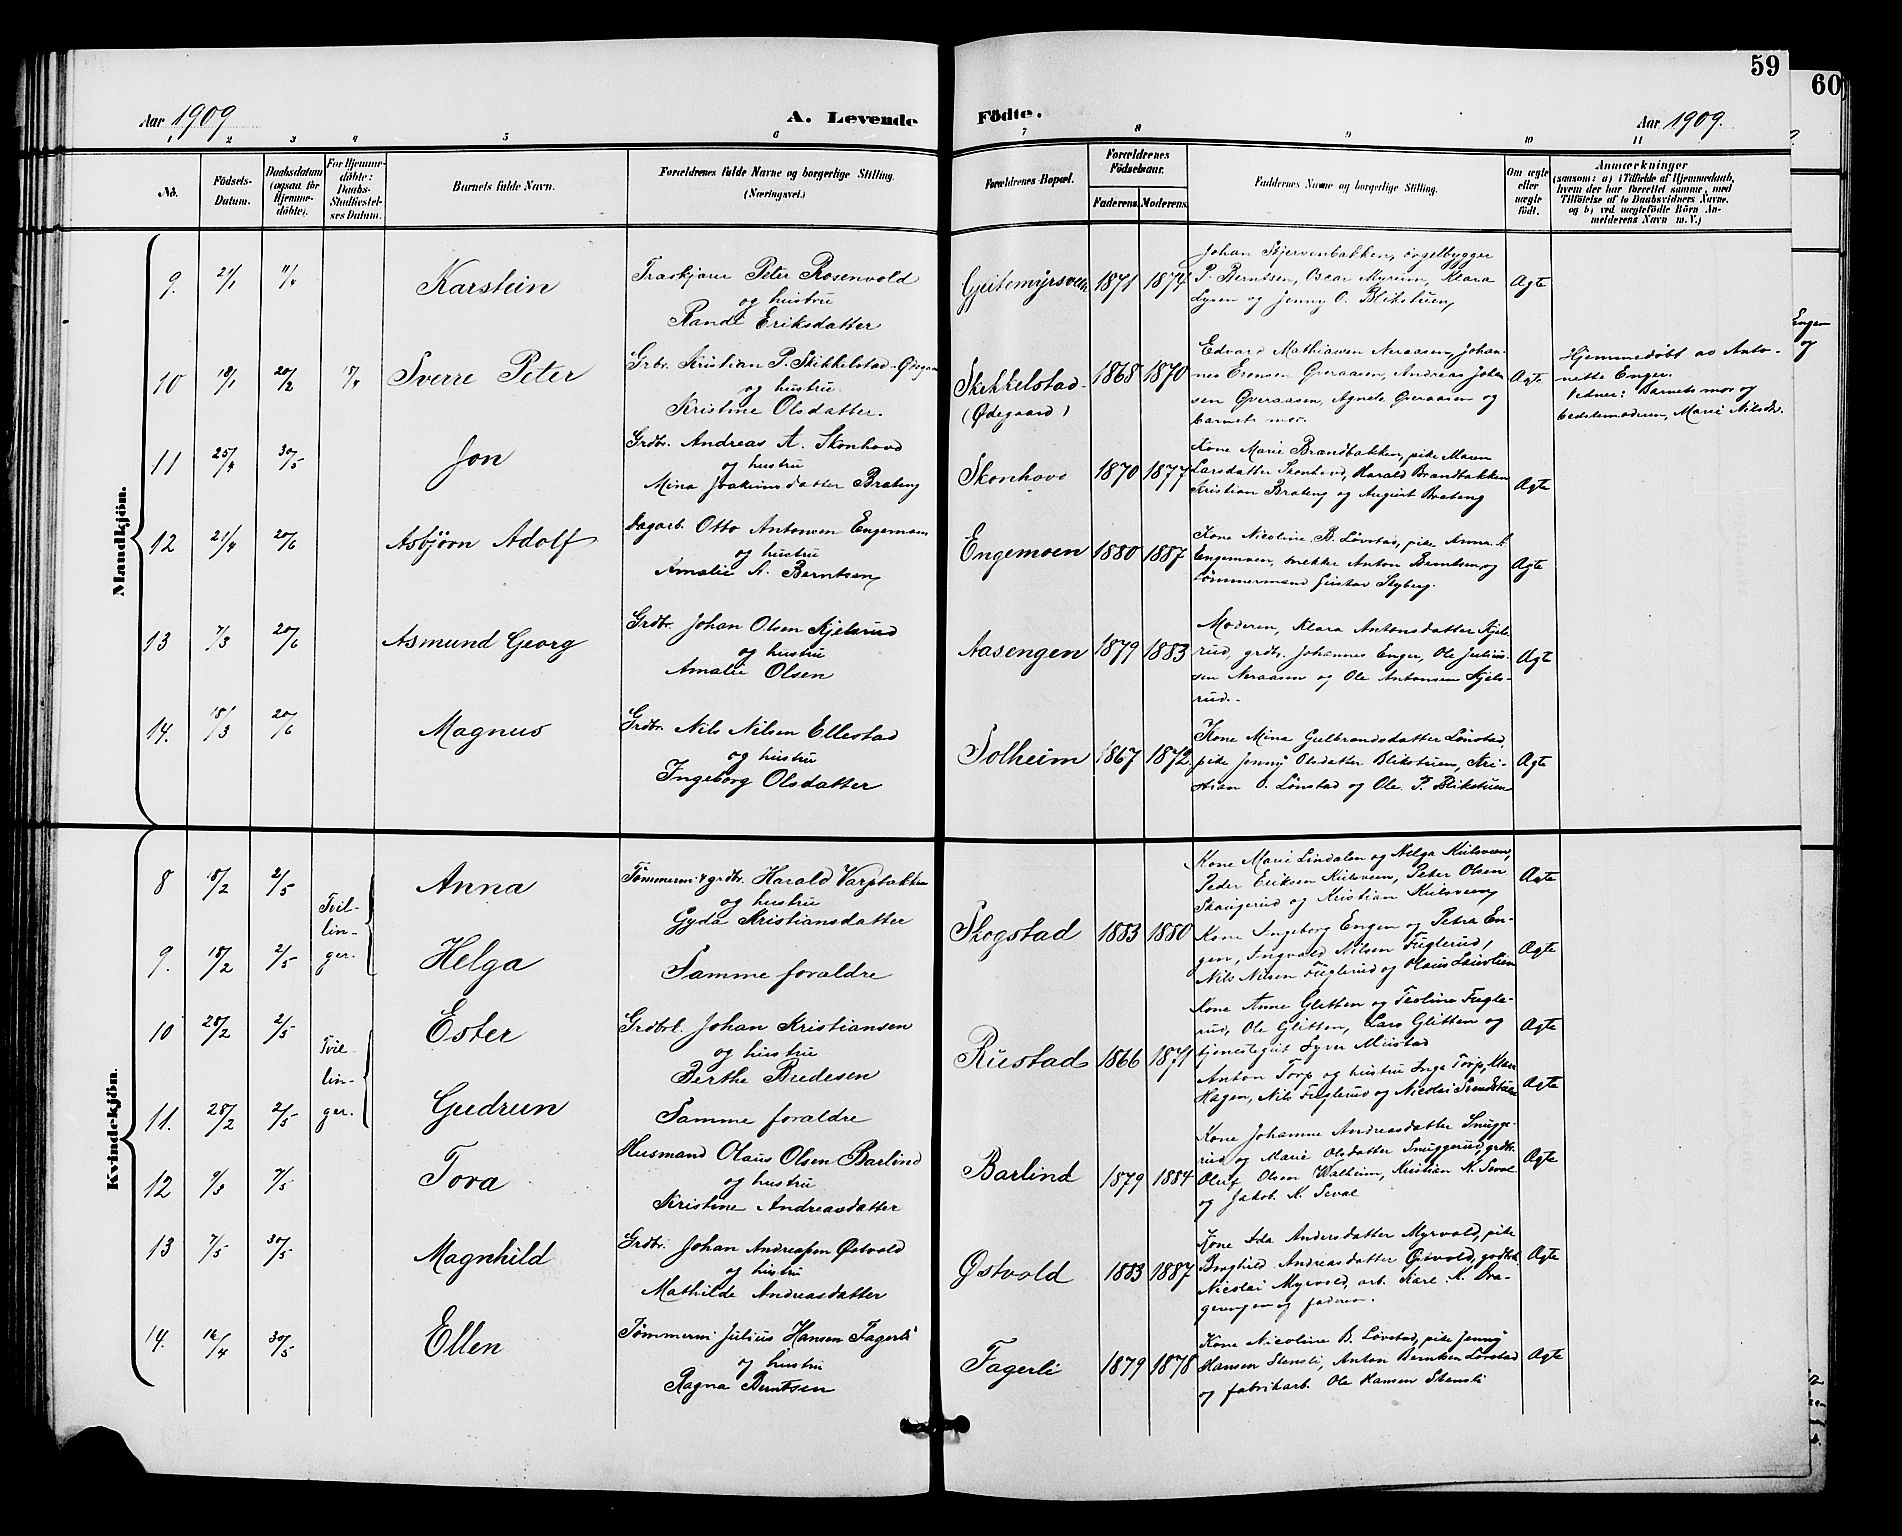 59
60
Aar 1909
A. Levende Födte.
Aar 1909.
1 2 3 4 5 6 7 8 9 10 11
No.
Födsels-Datum.
Daabsdatum (ogsaa for Hjemme-döbte).
For Hjemme-döbte: Daabs-Stadfæstel-ses Datum.
Barnets fulde Navn.
Forældrenes fulde Navne og borgerlige Stilling. (Næringsvei.)
Forældrenes Bopæl.
Forældrenes Födselsaar.
Faderens.
Moderens.
Faddernes Navne og borgerlige Stilling.
Om ægte eller uægte födt.
Anmærkninger
(saasom: a) i Tilfælde af Hjemmedaab, hvem der har forrettet samme, med Tilföielse af to Daabsvidners Navne, og b) ved uægtefödte Börn An-melderens Navn m. V.)
Mandkjön.
9. 21/1 11/4 Karstein
Træskjærer Peter Rosenvold
og hustru
Randi Eriksdatter
Gjeitemyrsveen 1871 1874
Johan Skjervenbakken, orgelbygger
P. Berntsen, Oscar Myrum, Klara
Lysen og Jenny O. Blikstuen,
Ægte
10 18/1 20/2 Sverre Peter
Grbr. Kristian P. Skikkelstad-Ødegaard
og hustru
Kristine Olsdatter.
Skikkelstad
(Ødegaard) 1868 1870
Edvard Mathiassen Neraasen, Johan-
nes Evensen Gveraasen, Andreas Johan
sen Gveraasen, Agnete Gveraasen og
barnets mor.
Ægte
Hjemmedøbt av Anto-
nette Enger.
Vidner: Barnets mor og
bedstemoderen, Marie Nilsdr.
11 25/4 30/5 Jon
Grdbr. Andreas A. Skonhovd
og hustru
Mina Joakimsdatter Brateng
Skonhovd 1870 1877
Kone Marie Brandbakken, pike Maren
Larsdatter Skonhovd, Harald Brandbakken
Kristian Brateng og August Brateng
Ægte
12 21/4 20/6 Asbjørn Adolf
Dagarb. Otto Antonsen Engemoen
og hustru
Amalie A. Berntsen,
Engemoen 1880 1887
Kone Nicoline B. Løvstad, pike Anna A
Engemoen, snekker Anton Berntsen, og
tømmermand Gustav Styberg.
Ægte
13 7/3 20/6 Asmund Georg
Grdbr. Johan Olsen Kjelsrud
og hustru
Amalie Olsen
Aasengen 1879 1883
Moderen, Klara Antonsdatter Kjels
rud, grdbr. Johannes Enger, Ole Julius-
sen Neraasen og Ole Antonsen Kjels-
rud.
Ægte
14. 18/3 20/6 Magnus
Grdbr. Nils Nilsen Ellestad
og hustru
Ingeborg Olsdatter
Solheim 1867 1872
Kone Mina Gulbrandsdatter Lønstad,
pike Jenny Olsdatter Blikstuen, Kri-
stian O. Lønstad og Ole P. Blikstuen
Ægte
Kvindekjön.
8 18/2 2/5 Anna
Tømmerm. & grdbr. Harald Varpbakken
og hustru
Gyda Kristiansdatter
Kone Marie Lindalen og Helga Kulsveen,
Peder Eriksen Kulsveen, Peter Olsen
Skaugerud og Kristian Kulsveen
Ægte
Tvil-
lin-
ger.
Skogstad 1883 1880
9. 18/2 2/5 Helga
Samme forældre
Kone Ingeborg Engen og Petra En-
gen, Ingvald Nilsen Fuglerud,
Nils Nilsen Fuglerud og Olaus Laurlien
Ægte
10 28/2 2/5 Ester
Grdbr. Johan Kristiansen
og hustru
Berthe Bredesen
Kone Anne Glitten og Teoline Fugle-
rud, Ole Glitten, Lars Glitten og
tjenestegut Syver Mustad
Ægte
Tvil-
lin-
ger.
Rustad 1866 1871
11. 28/2 2/5 Gudrun
Samme forældre
Anton Torp og hustru Inga Torp, Klara
Hagen, Nils Fuglerud og Nicolai Svendstuen
Ægte
12 9/3 7/5 Tora
Husmand Olaus Olsen Barlind
og hustru
Kristine Andreasdatter
Barlind 1879 1884
Kone Johanne Andreasdatter Snugge-
rud og Marie Olsdatter Snuggerud, grdbr.
Oluf Olsen Walheim, Kristian K. Seval
og Jakob K. Seval
Ægte
13 7/5 30/5 Magnhild
Grdbr. Johan Andreassen Østvold
og hustru
Mathilde Andreasdatter
Østvold 1883 1887
Kone Ida Andersdatter Myrvold, pike
Borghild Andreasdatter Østvold, grdbr.
Nicolai Myrvold, arb. Karl K. Dra-
gerengen og faderen.
Ægte
14. 16/4 30/5 Ellen
Tømmerm Julius Hansen Fagerli
og hustru
Ragna Berntsen
Fagerli 1879 1878
Kone Nicoline B. Løvstad, pike Jenny
Hansen Stensli, Anton Berntsen Løvstad
og fabrikarb. Ole Hansen Stensli
Ægte
Engen
og